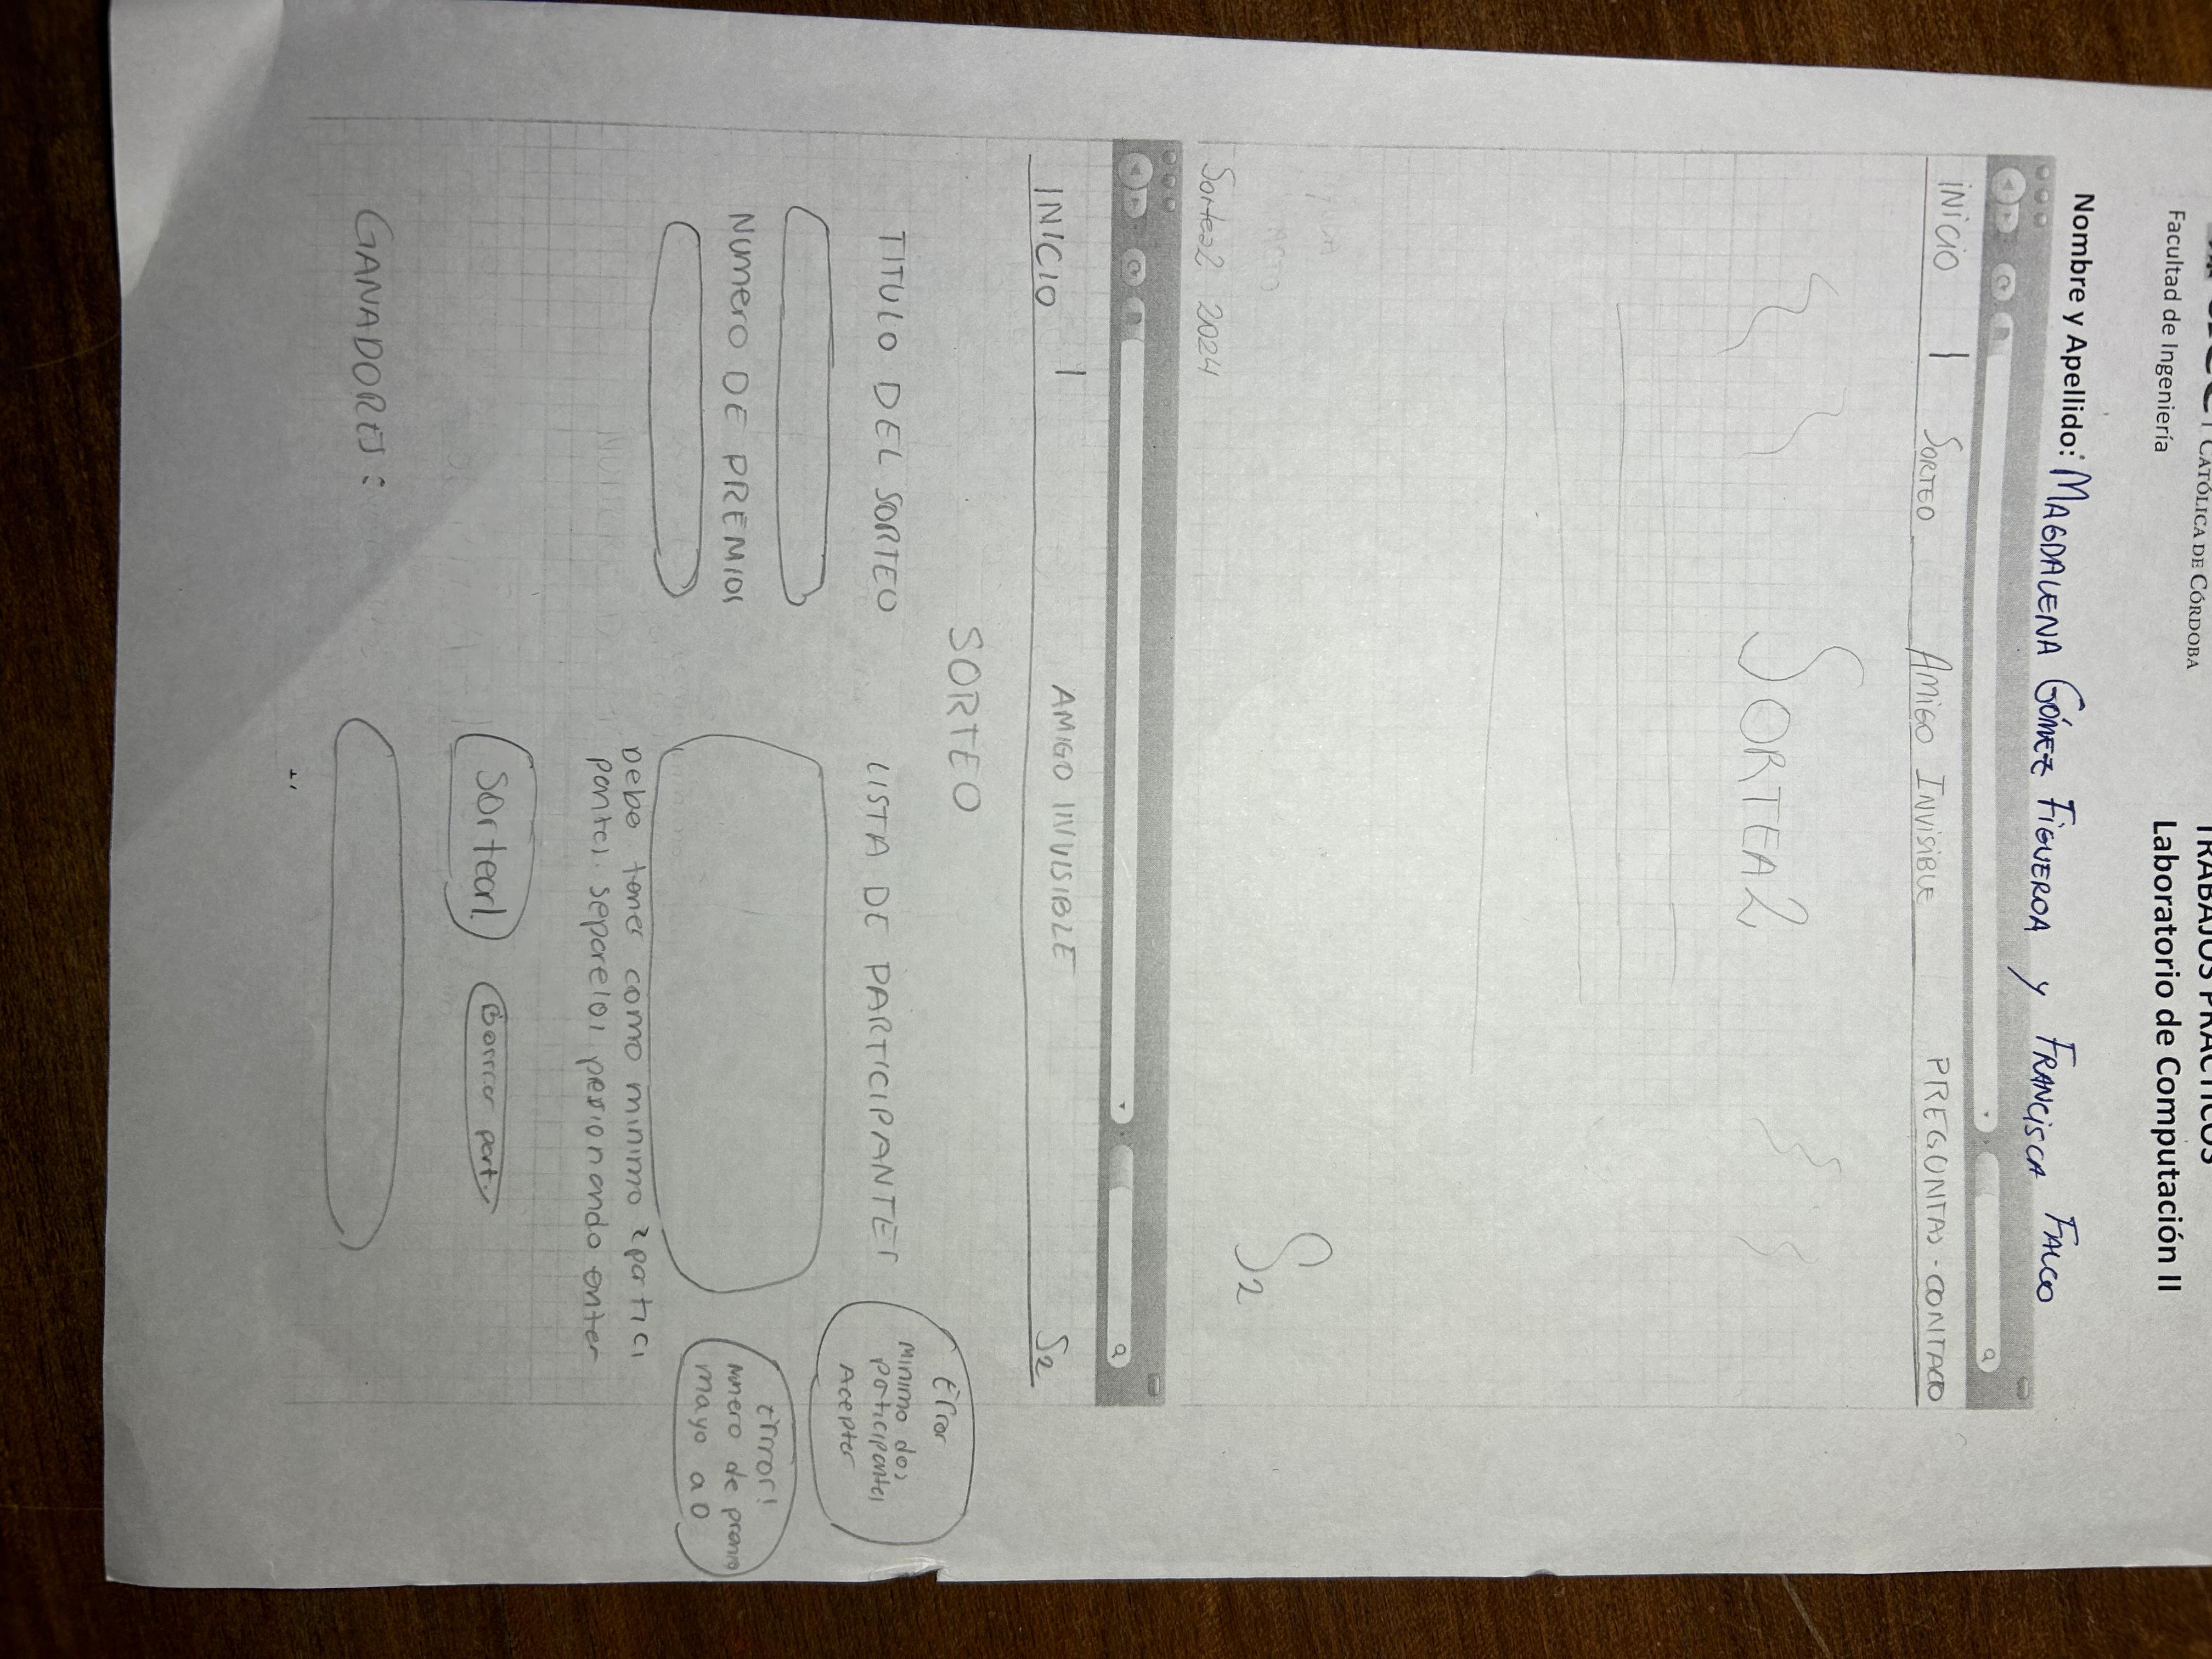 CATÓLICA DE CÓRDOBA
Facultad de Ingeniería
TRABAJOS PRÁCTICOS
Laboratorio de Computación II
Nombre y Apellido: MAGDALENA GÓMEZ FIGUEROA Y FRANCISCA FALCO
INICIO | SORTEO AMIGO INVISIBLE PREGUNTAS - CONTACTO
SORTEA2
S2
Sortea2 2024
INICIO | AMIGO INVISIBLE S2
SORTEO
TITULO DEL SORTEO LISTA DE PARTICIPANTES
NUMERO DE PREMIOS
Debe tener como minimo 2 partici
pantes. separelos presionando enter
Sortear!
Borrar part.
GANADORES:
Error
Minimo dos
participantes
Acepter
Error!
numero de premio
mayo a 0